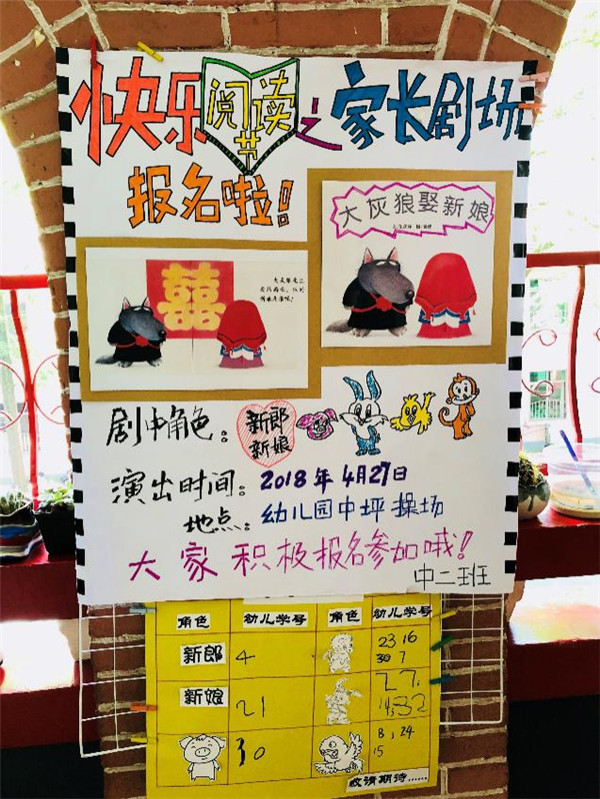 快乐阅读节之家长剧场
报名啦!
大灰狼娶新娘
囍
剧中角色: 新郎 新娘
演出时间: 2018年4月27日
地点: 幼儿园中坪操场
大家积极报名参加哦!
中二班
角色 幼儿学号 角色 幼儿学号
新郎 4 23 16
30 7
新娘 21 27,
14,32
30 8,24
15
敬请期待......